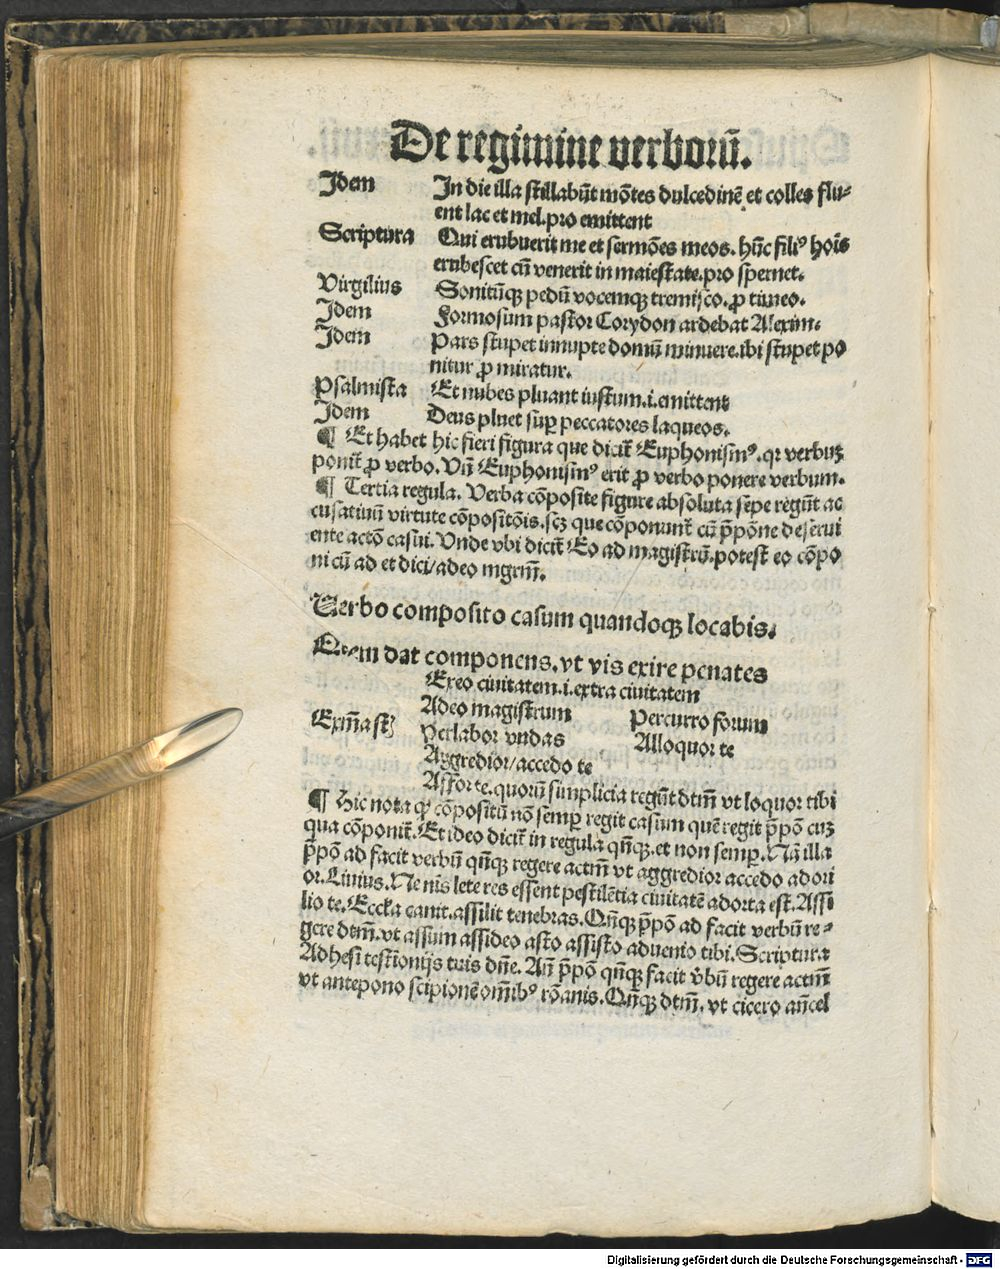 De regimine verborū.
Idem In die illa stillabūt mōtes dulcedinē et colles flu-
ent lac et mel. pro emittent
Scriptura Qui erubuerit me et sermōes meos. hūc filiꝰ hoīs
erubescet cū venerit in maiestate. pro spernet.
Virgilius Sonitūqꝫ pedū vocemqꝫ tremisco. ꝓ timeo.
Idem Formosum pastor Corydon ardebat Alexim.
Idem Pars stupet innupte domū minuere. ibi stupet po
nitur ꝓ miratur.
Psalmista Et nubes pluant iustum. i. emittent
Idem Deus pluet suꝑ peccatores laqueos.
¶ Et habet hic fieri figura que dicit̄ Euphonismꝰ. qꝛ verbuꝫ
ponit̄ ꝓ verbo. Vn̄ Euphonismꝰ erit ꝓ verbo ponere verbum.
¶ Tertia regula. Verba cōposite figure absoluta sepe regūt ac
cusatiuū virtute cōpositōis. scꝫ que cōponunt̄ cū p̄pōne deserui
ente actō casui. Vnde vbi dicit̄ Eo ad magistrū. potest eo cōpo
ni cū ad et dici/adeo mgrm̄.
Verbo composito casum quandoqꝫ locabis.
Quem dat componens. vt vis exire penates
Exeo ciuitatem. i. extra ciuitatem
Adeo magistrum Percurro forum
Exm̄a st̄ Perlabor vndas Alloquor te
Aggredior/accedo te
Affor te. quorū simplicia regūt dtm̄ vt loquor tibi
¶ Hic nota qꝙ cōpositū nō semꝑ regit casum quē regit p̄pō cuꝫ
qua cōponit̄. Et ideo dicit̄ in regula qn̄qꝫ. et non semꝑ. Nā illa
p̄pō ad facit verbū qn̄qꝫ regere actm̄ vt aggredior accedo adori
or. Liuius. Ne nīs lete res essent pestilētia ciuitatē adorta est. Assi
lio te. Eccl̄a canit. assilit tenebras. Qn̄qꝫ p̄pō ad facit verbū re-
gere dtm̄. vt assum assideo asto assisto aduenio tibi. Scriptura
Adhesi testīonijs tuis dn̄e. An̄ p̄pō qn̄qꝫ facit v̄bū regere actm̄
vt antepono scipionē om̄ibꝰ rōanis. Qn̄qꝫ dtm̄. vt cicero an̄cel
Digitalisierung gefördert durch die Deutsche Forschungsgemeinschaft - DFG